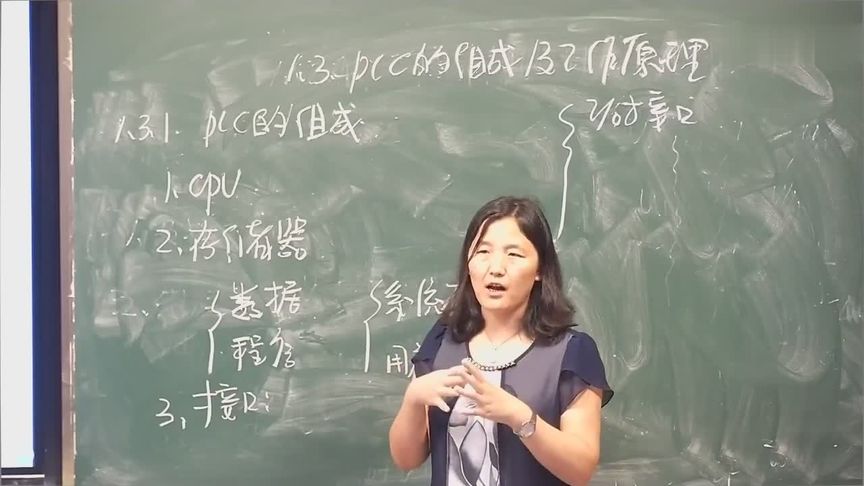 1.3. PLC的组成及工作原理
1.3.1. PLC的组成
I/O接口
1. CPU
2、存储器
数据
系统
程序
用
3、接口: